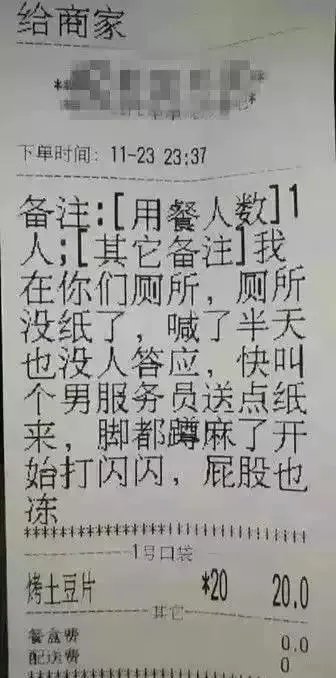 给商家
下单时间: 11-23 23:37
备注:[用餐人数]1
人;[其它备注]我
在你们厕所，厕所
没纸了，喊了半天
也没人答应，快叫
个男服务员送点纸
来，脚都蹲麻了开
始打闪闪，屁股也
冻
1号口袋
烤土豆片 *20 20.0
其它
餐盒费 0.0
配送费 0